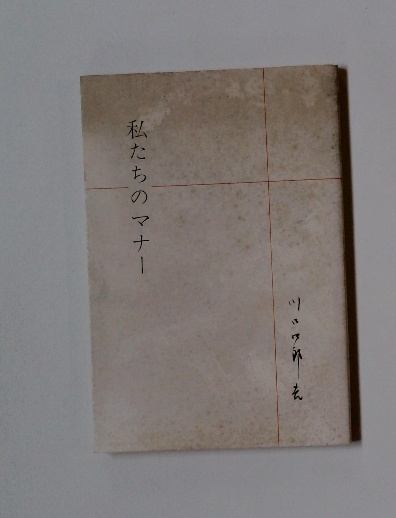 私たちのマナー
川口四郎著